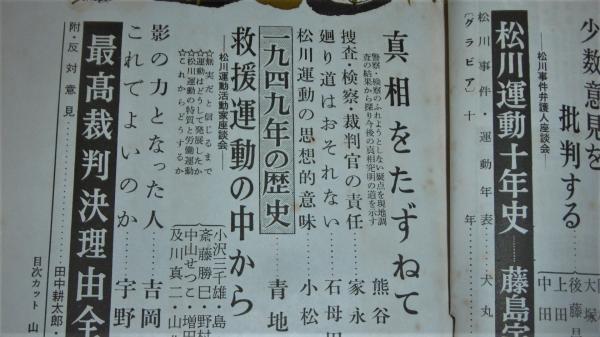 少数意見を
批判する
松川事件弁護人座談会
後藤昌
上田
中田
大塚
松川運動十年史……藤島宇
松川事件・運動年表……犬丸
〔グラビア〕十年
真相をたずねて……熊谷
警察・検察のふれようとしない疑点を現地調
査の結果から探り今後の真相究明の道を示す
捜査・検察・裁判官の責任……家永
廻り道はおそれない……石母田
松川運動の思想的意味……小松
一九四九年の歴史……青地
救援運動の中から
松川運動活動家座談会
☆無実だと信じるまで
☆運動はどうして発展したか
☆松川運動の特質と労働運動
☆これからどうするか
小沢三千雄・島
斎藤勝巳・野村
中山せつこ・増田
及川真二・山
影の力となった人……吉岡
これでよいのか……宇野
最高裁判決理由全
附・反対意見……田中耕太郎・
目次カット 山